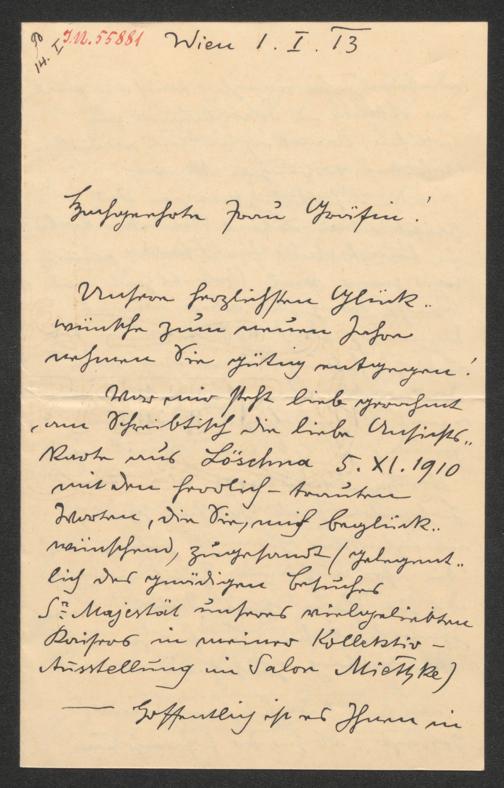 I.N. 55881
14. I
Wien 1. I. 13
Hochgeehrte Frau Gräfin!
Unsere herzlichsten Glück-
wünsche zum neuen Jahre
nehmen Sie gütig entgegen!
Vor mir steht lieb gerahmt
am Schreibtisch die liebe Ansichts-
karte aus Löschna 5. XI. 1910
mit den herrlich-trauten
Worten, die Sie, mich beglück-
wünschend, zugesandt (gelegent-
lich des gnädigen Besuches
Sr Majestät unseres vielgeliebten
Kaisers in meiner Kollektiv-
Ausstellung im Salon Miethke)
— Hoffentlich ist es Ihnen in